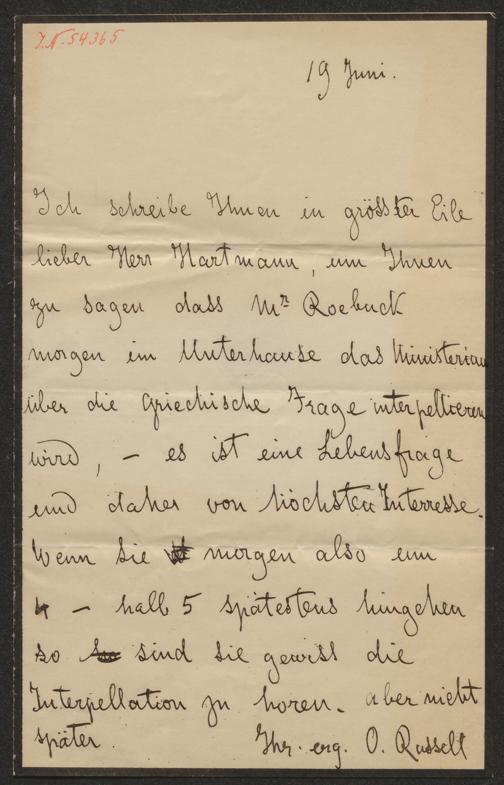 J.N. 54365
19 Juni.
Ich schreibe Ihnen in grösster Eile
lieber Herr Hartmann, um Ihnen
zu sagen dass Mr. Roebuck
morgen im Unterhause das Ministerium
über die Griechische Frage interpellieren
wird, – es ist eine Lebensfrage
und daher von höchsten Interresse.
Wenn Sie morgen also um
4 – halb 5 spätestens hingehen
so sind sie gewiss die
Interpellation zu horen. aber nicht
später. Ihr. erg. O. Russell